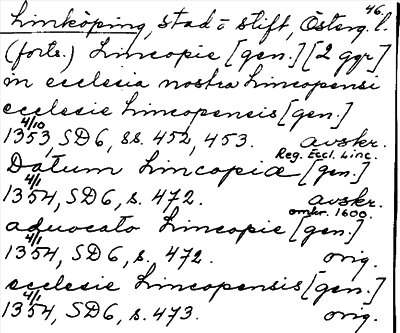 46.
Linköping, stad o stift, Österg. l.
(forts.) Lincopie [gen.] [2 ggr]
in ecclesia nostra Lincopensi
ecclesie Lincopensis [gen.]
4/10
1353, SD6, ss. 452, 453. avskr.
Reg. Eccl. Linc.
Datum Lincopiæ [gen.]
4/1
1354, SD6, s. 472. avskr.
omkr. 1600.
aduocato Lincopie [gen.]
4/1
1354, SD6, s. 472. orig.
ecclesie Lincopensis [gen.]
4/1
1354, SD6, s. 473. orig.